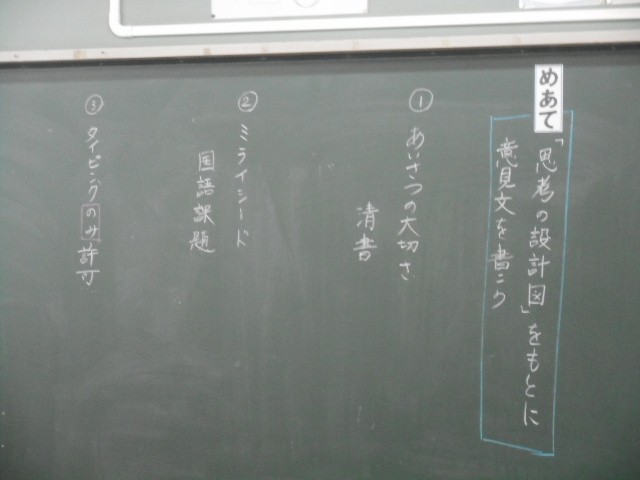 めあて
「思考の設計図」をもとに
意見文を書こう
① あいさつの大切さ
清書
② ミライシード
国語課題
③ タイピングのみ許可